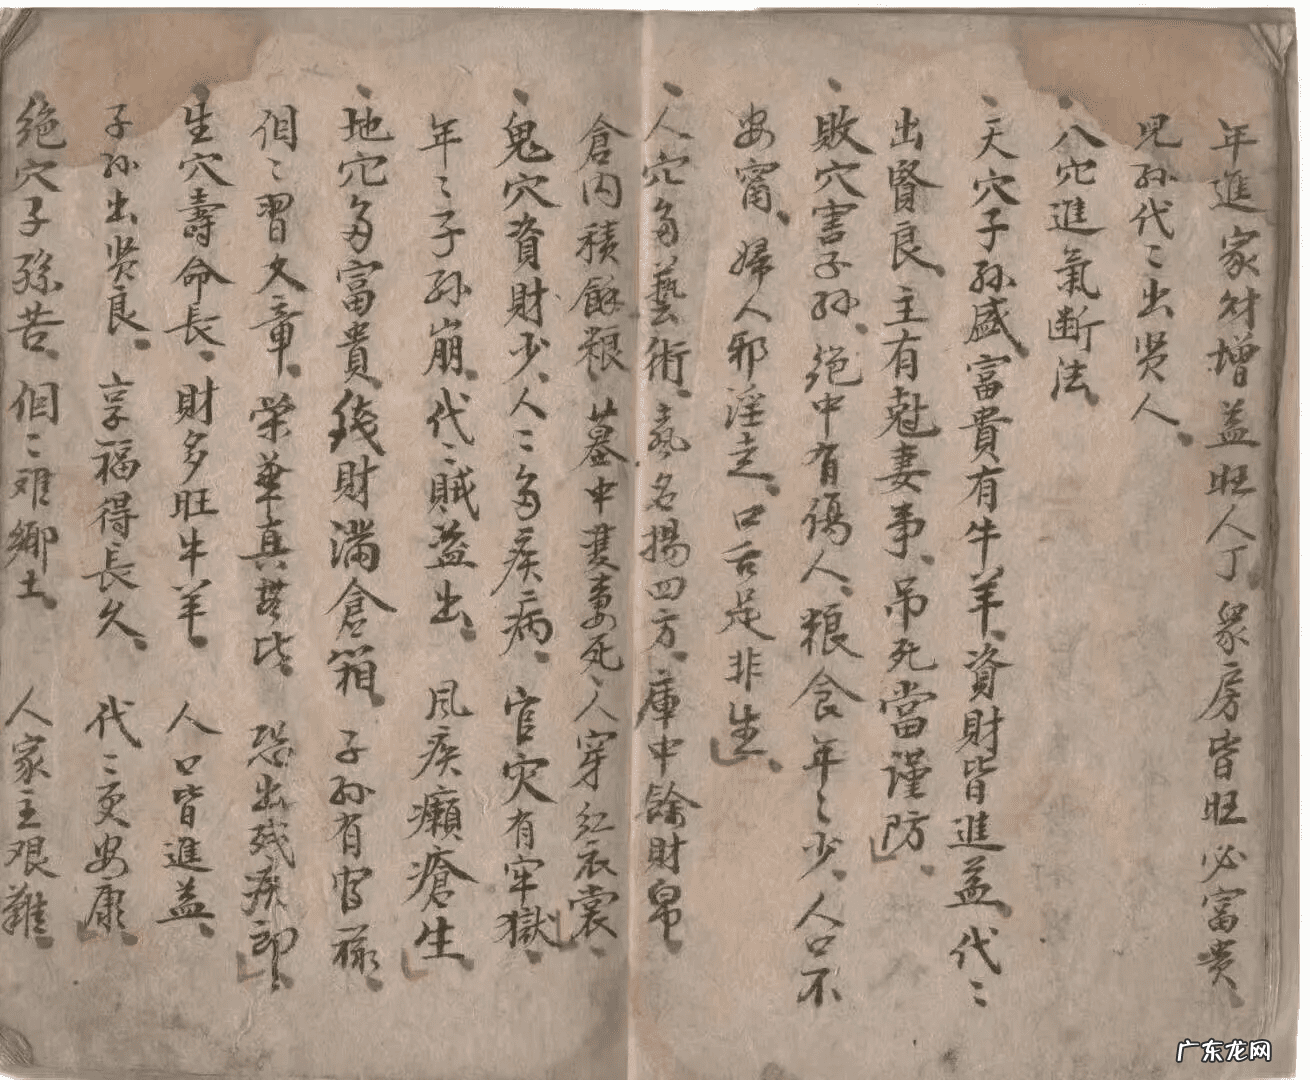 年進家財增益旺人丁衆房皆旺必富貴、
児孙代〻出贤人、
八穴進氣断法
天穴子孙盛富貴有牛羊、資財皆進益、代〻
出賢良、主有尅妻事、吊死當谨防、
敗穴害子孙、绝中有傷人、粮食年〻少、人口不
安甯、婦人邪淫走、口舌是非生、
人穴多藝術、藝名揚四方、庫中餘財帛、
倉内積餘粮、墓中妻死、人穿红衣裳、
鬼穴資財少、人〻多疾病、官灾有牢獄、
年〻子孙崩、代〻賊盗出、風疾癩瘡生
地穴多富貴錢財滿倉箱、子孙有官禄、
個〻習文章、榮華真皆、恐出残疾郎、
生穴壽命長、財多旺牛羊、人口皆進益、
子孙出贤良、享福得長久、代〻安康、
绝穴子孫苦、個〻难鄉土、人家主艰難、
广东龙网